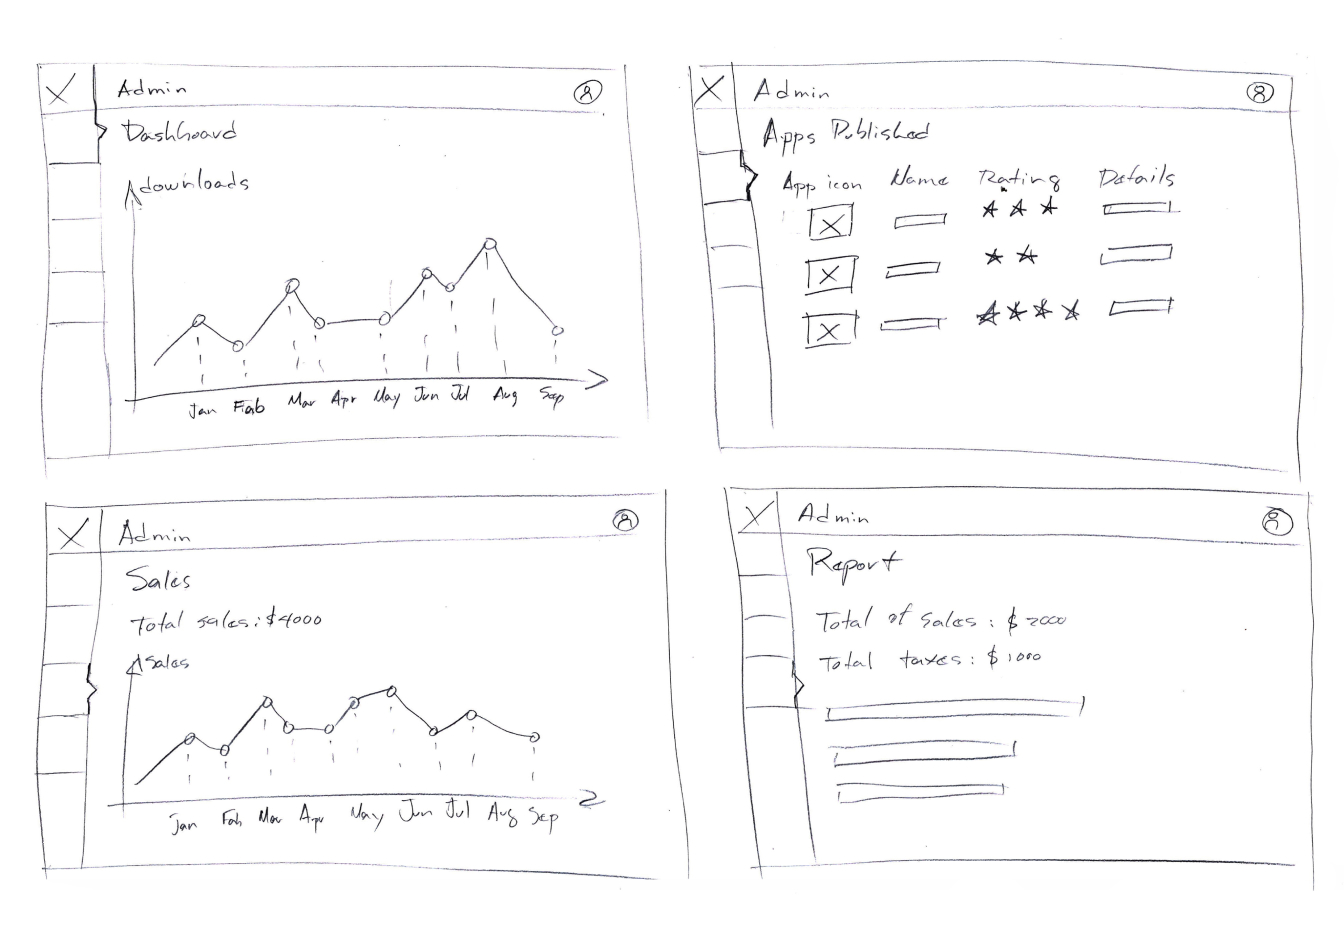 Admin
Dashboard
downloads
Jan Feb Mar Apr May Jun Jul Aug Sep
Admin
Apps Published
App icon Name Rating Details
Admin
Sales
Total sales: $4000
Sales
Jan Feb Mar Apr May Jun Jul Aug Sep
Admin
Report
Total of Sales : $ 2000
Total taxes : $ 1000